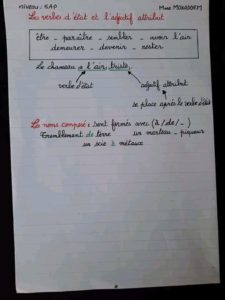 Niveau : 5AP
Les verbes d'état et l'adjectif attribut
être - paraître - sembler - avoir l'air
demeurer - devenir - rester
Le chameau a l'air triste.
verbe d'état adjectif attribut
se place après le verbe d'état
Les noms composé : sont formés avec (à / de / -)
Tremblement de terre un marteau - piqueur
un scie à métaux